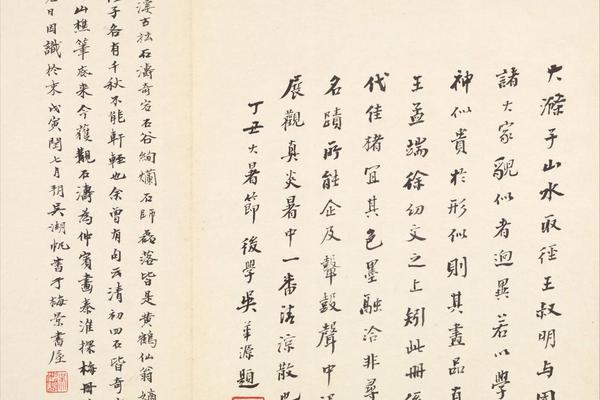 大滌子山水取徑王叔明与
諸大家貌似者迥異若以學
神似貴於形似則其畫品
王孟端徐幼文之上矧此冊
代佳楮宜其色墨融洽非尋
名蹟所能企及鼙鼓聲中
展觀真炎暑中一番清涼散
丁丑大暑節後學吳華源題
溪古拙石濤奇宕石谷絢爛石師磊落皆是黃鶴仙翁嫡
子各有千秋不能軒輊也余曾有句云清初四石皆奇
山樵筆底來今獲觀石濤為仲賓畫秦淮探梅冊
日因識於末戊寅閏七月朔吳湖帆書于梅景書屋